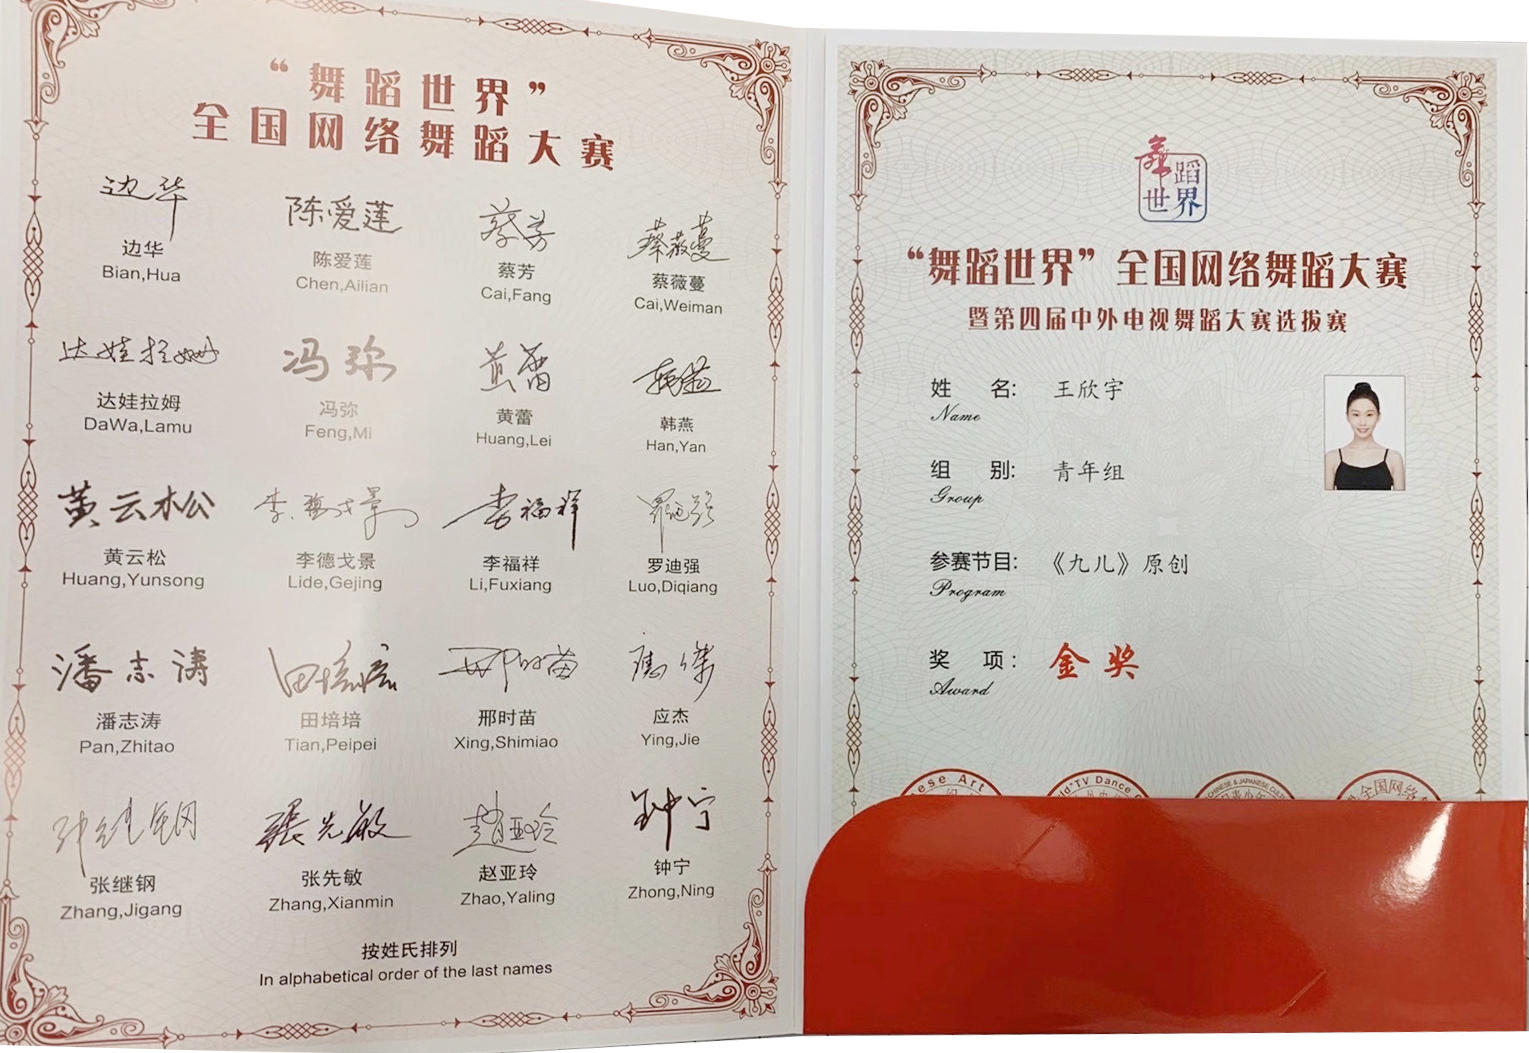 “舞蹈世界”
全国网络舞蹈大赛
边华 陈爱莲 蔡芳 蔡薇蔓
边华 陈爱莲 蔡芳 蔡薇蔓
Bian,Hua Chen,Ailian Cai,Fang Cai,Weiman
达娃拉姆 冯弥 黄蕾 韩燕
达娃拉姆 冯弥 黄蕾 韩燕
DaWa,Lamu Feng,Mi Huang,Lei Han,Yan
黄云松 李德戈景 李福祥 罗迪强
黄云松 李德戈景 李福祥 罗迪强
Huang,Yunsong Lide,Gejing Li,Fuxiang Luo,Diqiang
潘志涛 田培培 邢时苗 应杰
潘志涛 田培培 邢时苗 应杰
Pan,Zhitao Tian,Peipei Xing,Shimiao Ying,Jie
张继钢 張先敏 赵亚玲 钟宁
张继钢 张先敏 赵亚玲 钟宁
Zhang,Jigang Zhang,Xianmin Zhao,Yaling Zhong,Ning
按姓氏排列
In alphabetical order of the last names
舞蹈
世界
“舞蹈世界”全国网络舞蹈大赛
暨第四届中外电视舞蹈大赛选拔赛
姓 名: 王欣宇
Name
组 别: 青年组
Group
参赛节目: 《九儿》原创
Program
奖 项: 金奖
Award